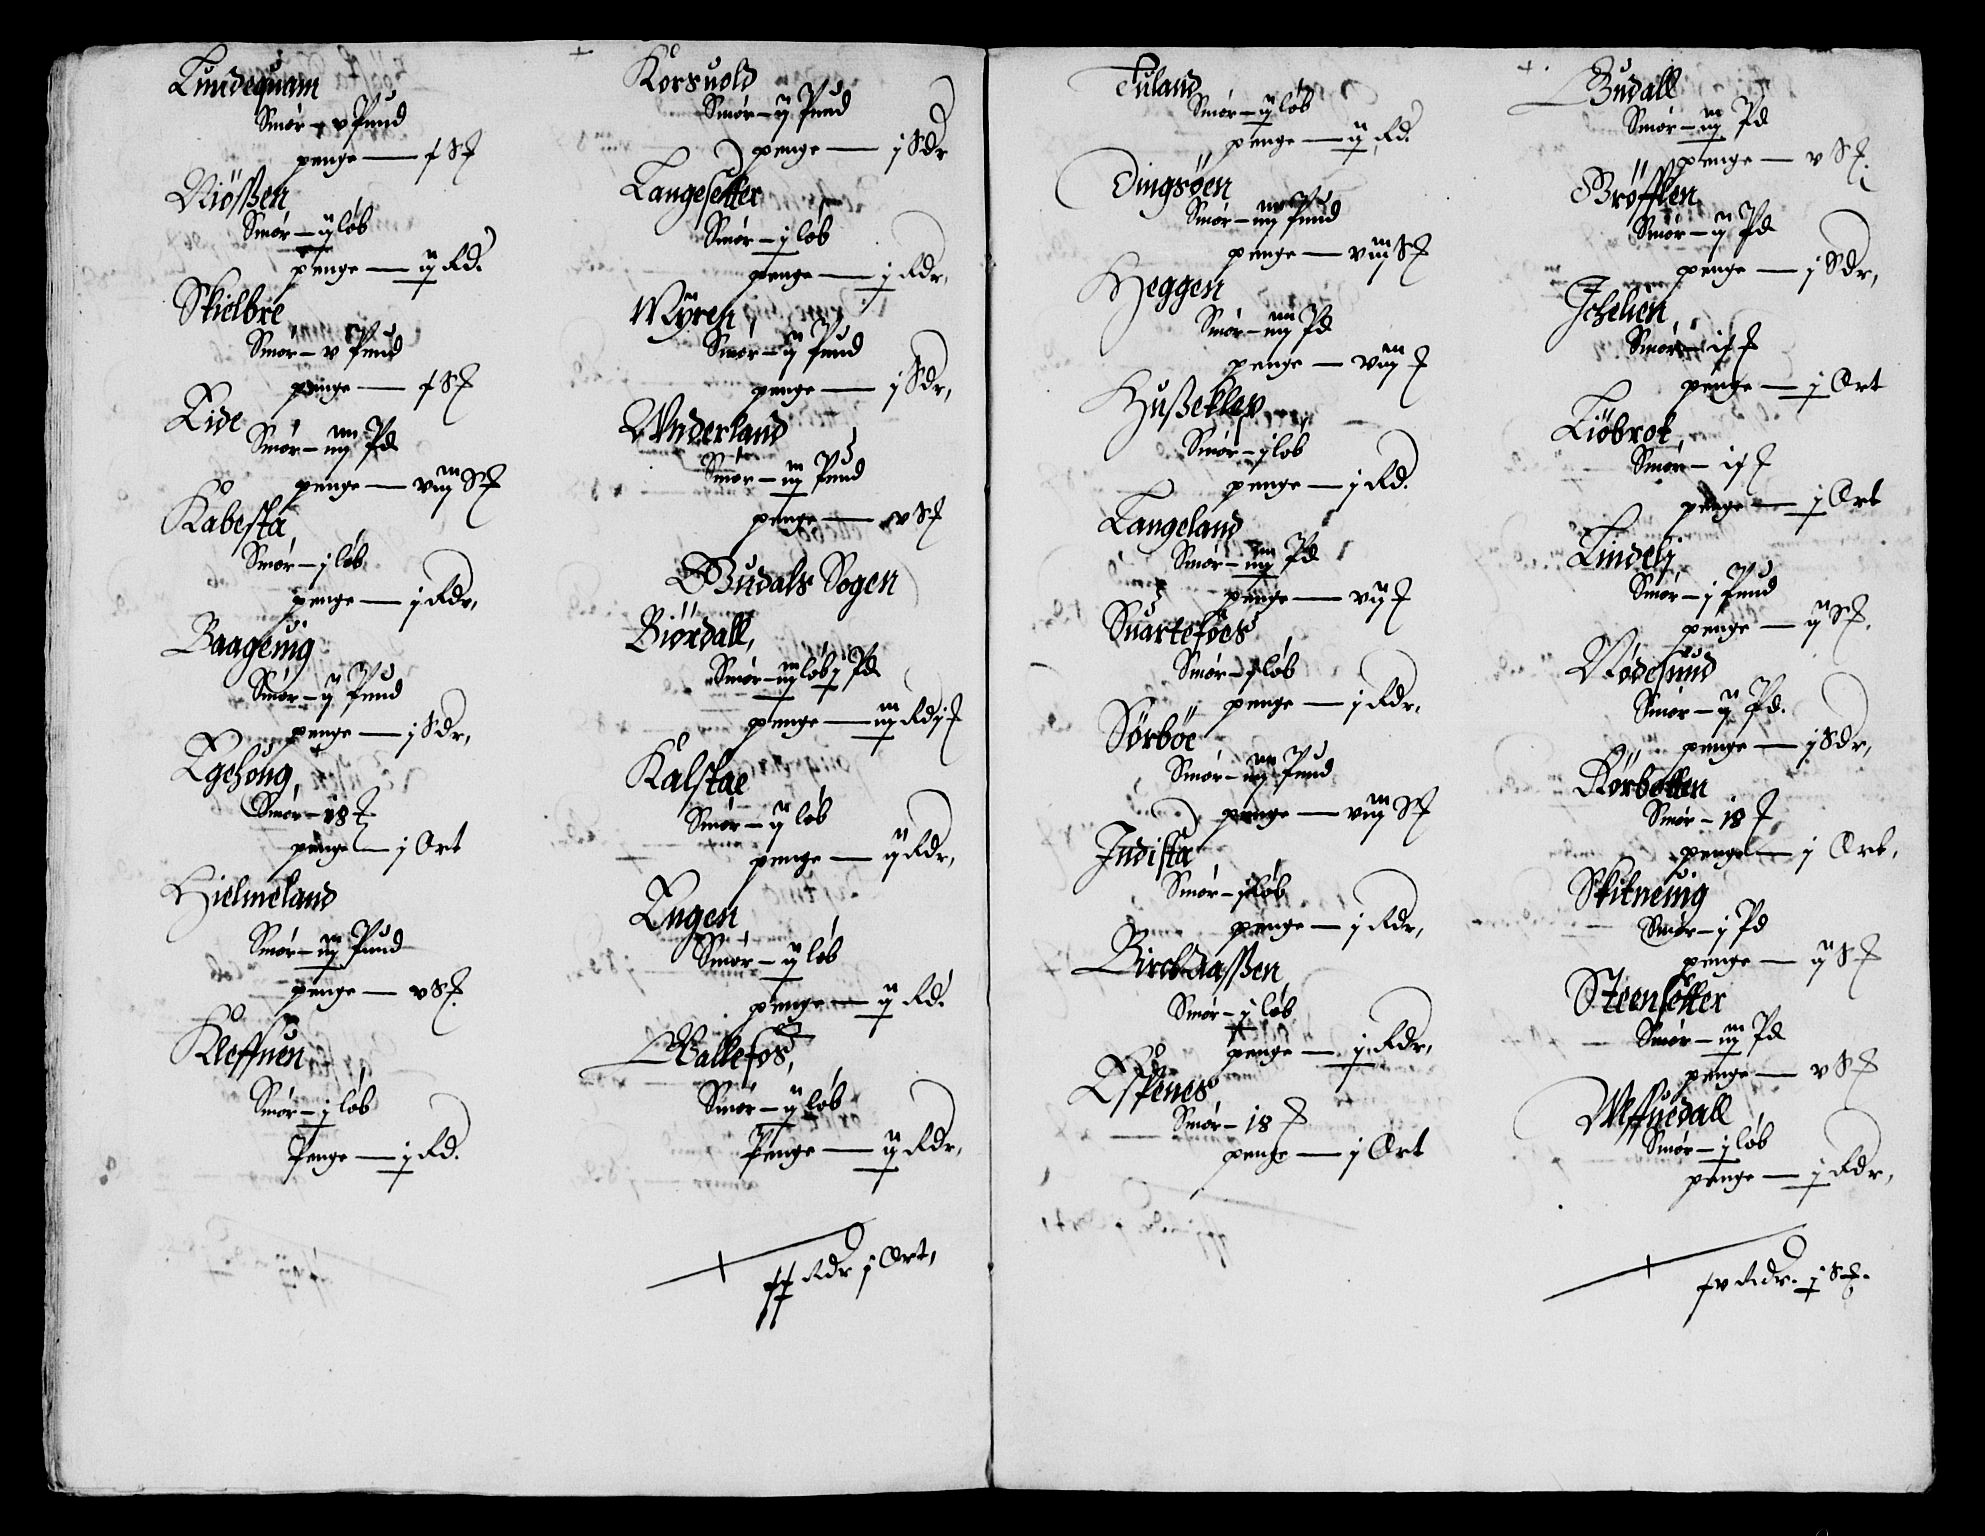 Lundequam
Smör — v Pund
penge — x S₰
Niößen
Smör — ij löb
penge — ij Rd.
Skielbre
Smör — v Pund
penge — x S₰
Lide
Smör — iiij Pd
penge — viij S₰
Kåbestå
Smör — j löb
penge — j Rdr,
Baageuig
Smör — ij Pund
penge — j Sdr,
Egehoug
Smör — 18 ₰
penge — j Ort
Hielmeland
Smör — iij Pund
penge — v S₰.
Kleffuen
Smör — j löb
Penge — j Rd.
Korsuold
Smör — ij Pund
penge — j Sdr
Langesetter
Smör — j löb
penge — j Rdr,
Myren
Smör — ij Pund
penge — j Sdr,
Wnderland
Smör — iij Pund
penge — v S₰
Gudals Sogen
Biördall,
Smör — iij löb j Pd
penge — iij Rd ij ₰
Kalstae
Smör — ij löb
penge — ij Rdr,
Engen
Smör — ij löb
penge — ij Rd.
Wallefos,
Smör — ij löb
Penge — ij Rdr,
xx Rdr j Ort,
Tuland
Smör — ij löb
penge — ij Rd.
Dingsöen
Smör — iiij Pund
penge — viij S₰
Heggen
Smör — iiij Pd
penge — viij ₰
Hußeklep
Smör — j löb
penge — j Rd.
Langeland
Smör — iiij Pd
penge — vij ₰
Suartefoes
Smör — j löb
penge — j Rdr,
Sörböe
Smör — iiij Pund
penge — viij S₰
Indistå
Smör — j löb
penge — j Rdr,
Birckaaßen
Smör — j löb
penge — j Rdr,
Espenes
Smör — 18 ₰
penge — j Ort
Gudall
Smör — iij Pd
penge — v S₰.
Gröfflen
Smör — ij Pd
penge — j Sdr,
Ichelien
Smör — ix ₰
penge — j Ort
Liöbrot
Smör — ix ₰
penge — j Ort
Lindeli
Smör — j Pund
penge — ij S₰.
Nödesund
Smör — ij Pd.
penge — j Sdr,
Rörbotten
Smör — 18 ₰
penge — j Ort,
Skitneuig
Smör — j Pd
penge — ij S₰
Steensetter
Smör — iij Pd
penge — v S₰
Weffuedall
Smör — j löb
penge — j Rdr,
xv Rdr. j S₰.